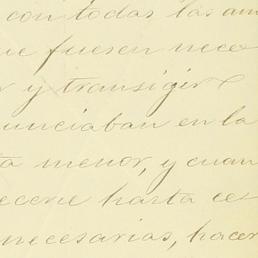 con todas las am
que fuesen nece
r y transigir
unciaban en la
ta menor, y cuan
ecerie hasta ce
necesarias, hacer